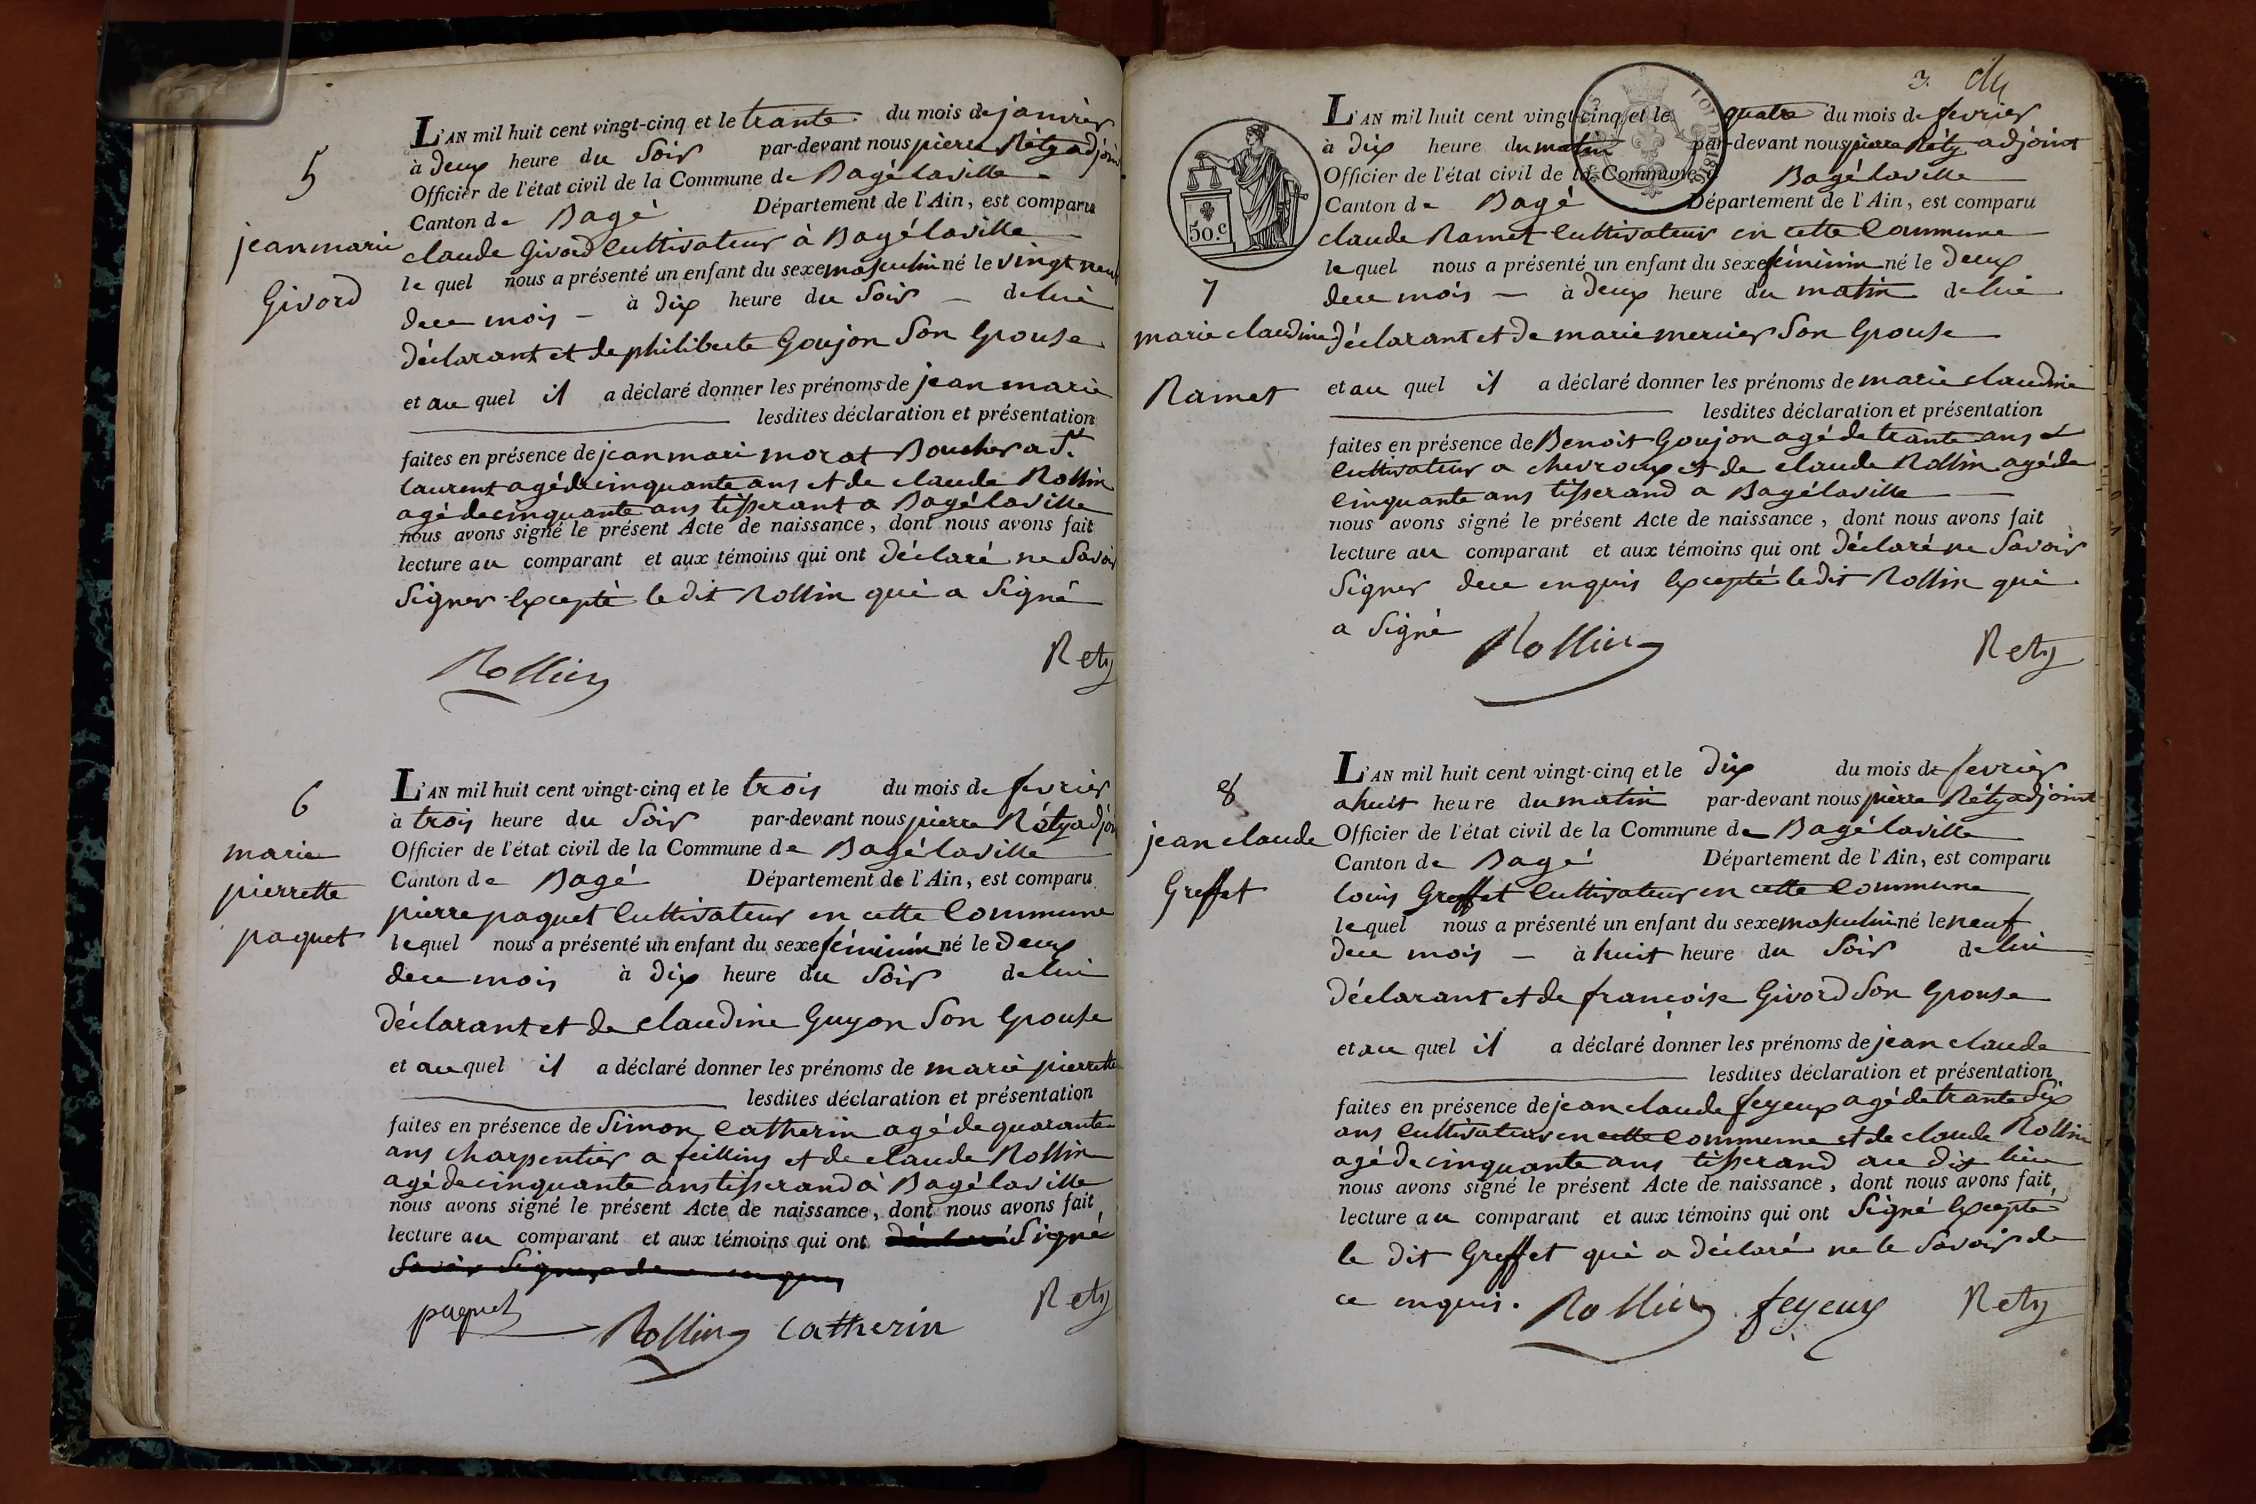 5
jean marie
Givord
L'AN mil huit cent vingt-cinq et le trante du mois de janvier
à deux heure du Soir par-devant nous pierre Réty adjoint
Officier de l'état civil de la Commune de Bagélaville
Canton de Bagé Département de l'Ain, est comparu
claude Givord Cultivateur à Bagélaville
le quel nous a présenté un enfant du sexe masculin né le vingt neuf
du ce mois à dix heure du Soir de lui
déclarant et de philiberte Goujon Son Epouse
et au quel il a déclaré donner les prénoms de jean marie
lesdites déclaration et présentation
faites en présence de jean mari morat Boucher a St
laurent agé de cinquante ans et de claude Rollin
agé de cinquante ans tisserant a Bagélaville
nous avons signé le présent Acte de naissance, dont nous avons fait
lecture au comparant et aux témoins qui ont déclaré ne Savoir
Signer Excepté le dit Rollin qui a Signé
Rollin Rety
6
marie
pierrette
paquet
L'AN mil huit cent vingt-cinq et le trois du mois de fevrier
à trois heure du Soir par-devant nous pierre Réty adjoin
Officier de l'état civil de la Commune de Bagélaville
Canton de Bagé Département de l'Ain, est comparu
pierre paquet Cultivateur en cette Commune
le quel nous a présenté un enfant du sexe féminin né le Deux
du ce mois à dix heure du Soir de lui
déclarant et de claudine Guyon Son Epouse
et au quel il a déclaré donner les prénoms de marie pierrette
lesdites déclaration et présentation
faites en présence de Simon Catherin agé de quarante
ans charpentier a feillins et de claude Rollin
agé de cinquante ans tisserand à Bagélaville
nous avons signé le présent Acte de naissance, dont nous avons fait
lecture au comparant et aux témoins qui ont déclaré Signé
Savoir Signer de ce enquis
paquet Rollin Catherin Rety
3.
50.c
7
marie claudine
Ramet
L'AN mil huit cent vingt-cinq et le quatre du mois de fevrier
à dix heure du matin par-devant nous pierre Réty adjoint
Officier de l'état civil de la Commune d Bagélaville
Canton de Bagé Département de l'Ain, est comparu
claude Ramet Cultivateur en cette Commune
le quel nous a présenté un enfant du sexe féminin né le deux
du ce mois à deux heure du matin de lui
déclarant et de marie mercier Son Epouse
et au quel il a déclaré donner les prénoms de marie claudine
lesdites déclaration et présentation
faites en présence de Benoit Goujon agé de trante ans
Cultivateur a chevroux et de claude Rollin agé de
cinquante ans tisserand a Bagélaville
nous avons signé le présent Acte de naissance, dont nous avons fait
lecture au comparant et aux témoins qui ont déclaré ne Savoir
Signer du ce enquis Excepté le dit Rollin qui
a Signé
Rollin Rety
8
jean claude
Greffet
L'AN mil huit cent vingt-cinq et le dix du mois de fevrier
a huit heure du matin par-devant nous pierre Réty adjoint
Officier de l'état civil de la Commune de Bagélaville
Canton de Bagé Département de l'Ain, est comparu
louis Greffet Cultivateur en cette Commune
le quel nous a présenté un enfant du sexe masculin né le neuf
du ce mois à huit heure du Soir de lui
déclarant et de francoise Givord Son Epouse
et au quel il a déclaré donner les prénoms de jean claude
lesdites déclaration et présentation
faites en présence de jean claude feyeux agé de trante Six
ans Cultivateur en cette Commune et de claude Rollin
agé de cinquante ans tisserand au dit lieu
nous avons signé le présent Acte de naissance, dont nous avons fait
lecture au comparant et aux témoins qui ont Signé Excepté
le dit Greffet qui a déclaré ne le Savoir de
ce enquis.
Rollin feyeux Rety